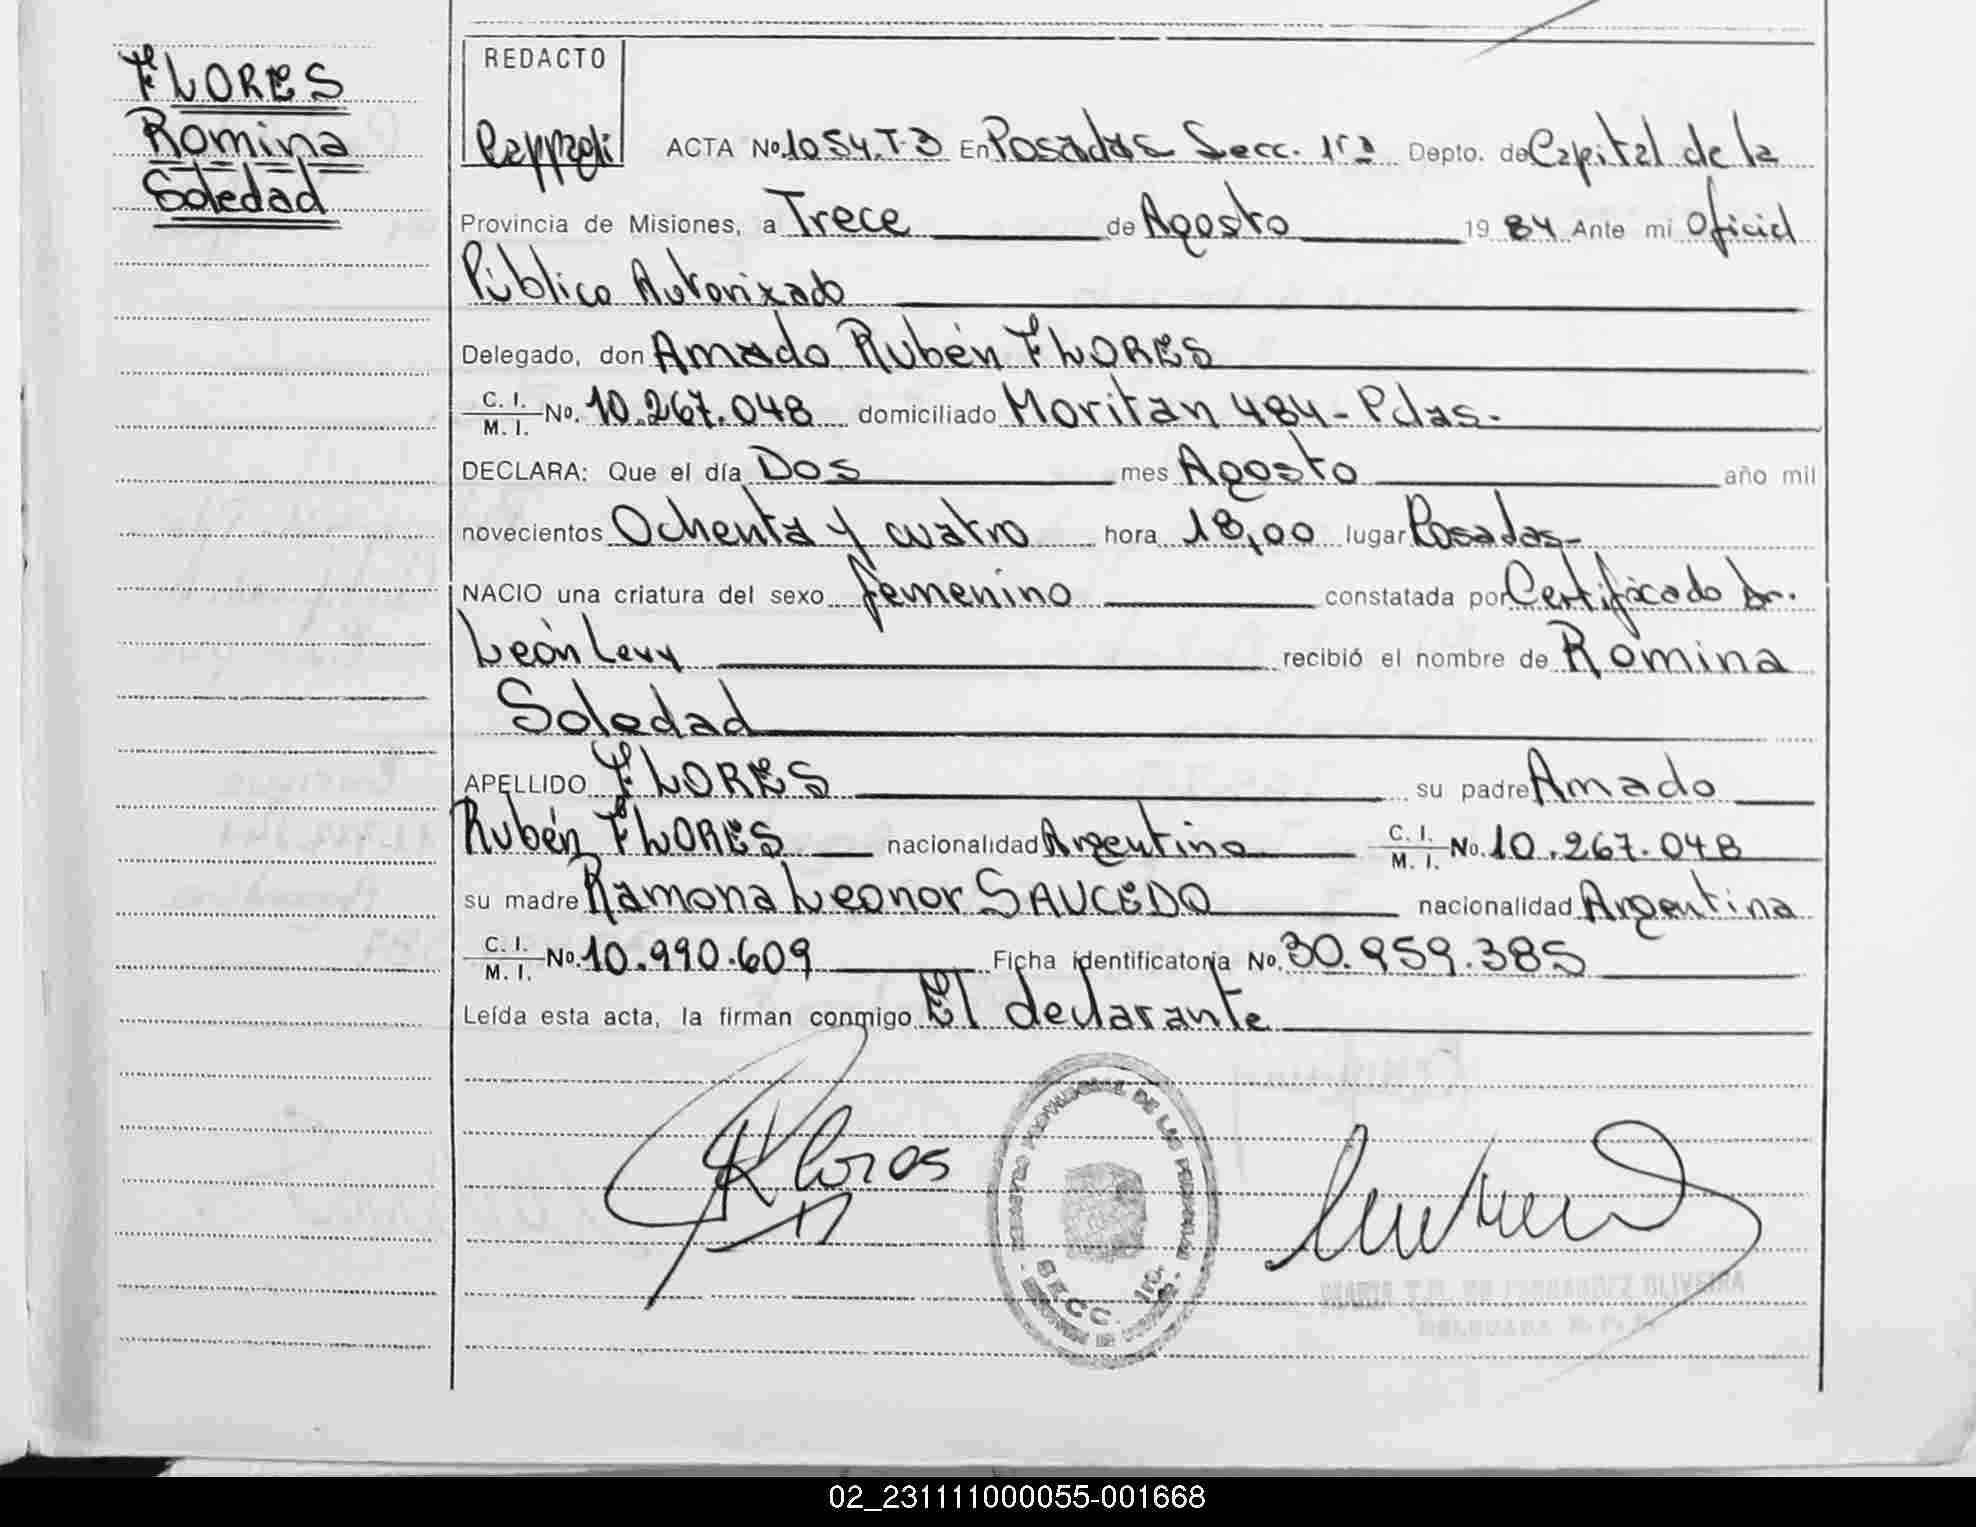 FLORES
Romina
Soledad
REDACTO
ACTA No. 1054.T-3 En Posadas Secc. 1ra Depto. de Capital de la
Provincia de Misiones, a Trece de Agosto 1984 Ante mi Oficial
Público Autorizado
Delegado, don Amado Rubén FLORES
C. I. / M. I. No. 10.267.048 domiciliado Moritan 484 - Pdas.
DECLARA: Que el día Dos mes Agosto año mil
novecientos Ochenta y cuatro hora 18,00 lugar Posadas-
NACIO una criatura del sexo femenino constatada por Certificado Dr.
León Levy recibió el nombre de Romina
Soledad
APELLIDO FLORES su padre Amado
Rubén FLORES nacionalidad Argentino C. I. / M. I. No. 10.267.048
su madre Ramona Leonor SAUCEDO nacionalidad Argentina
C. I. / M. I. No. 10.990.609 Ficha identificatoria No. 30.959.385
Leída esta acta, la firman conmigo El declarante
Flores
REGISTRO PROVINCIAL DE LAS PERSONAS
SECC. 1ra.
02_231111000055-001668